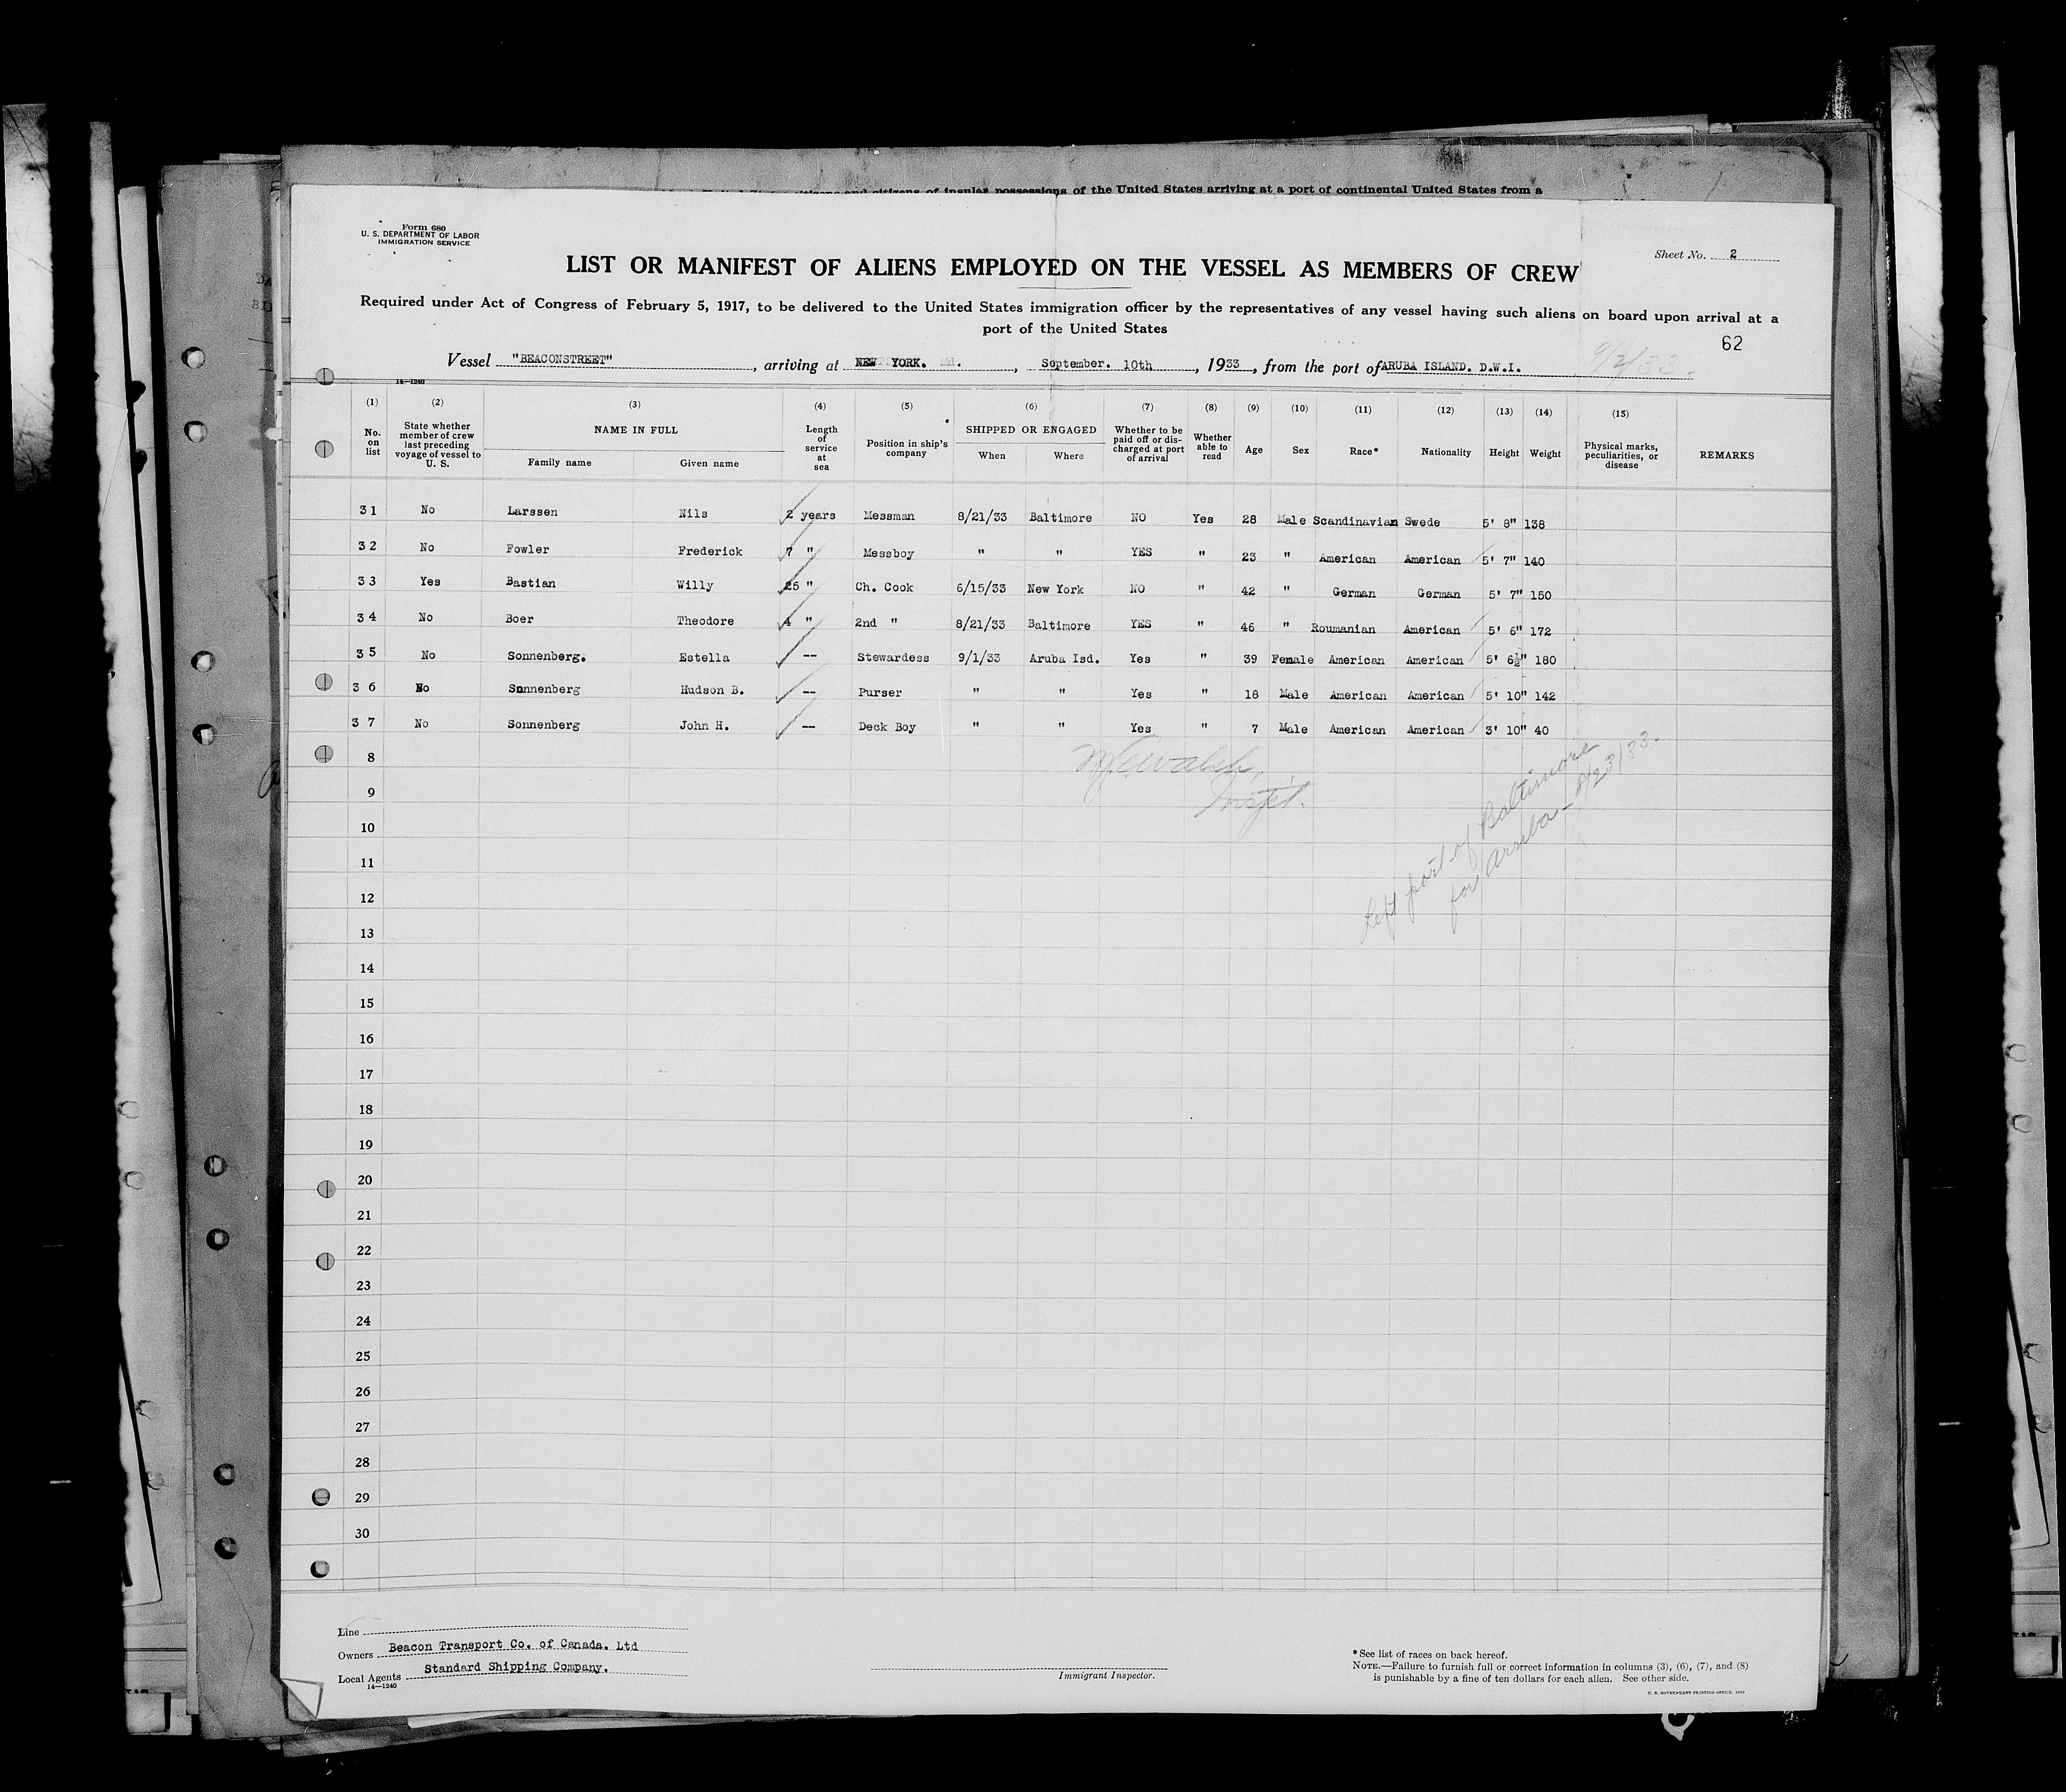 citizens and citizens of insular possessions of the United States arriving at a port of continental United States from a
Form 680
U. S. DEPARTMENT OF LABOR
IMMIGRATION SERVICE
Sheet No. 2
LIST OR MANIFEST OF ALIENS EMPLOYED ON THE VESSEL AS MEMBERS OF CREW
Required under Act of Congress of February 5, 1917, to be delivered to the United States immigration officer by the representatives of any vessel having such aliens on board upon arrival at a
port of the United States
62
Vessel "BEACONSTREET", arriving at NEW YORK. Md., September. 10th, 1933, from the port of ARUBA ISLAND. D.W.I. 9/2/33.
14—1240
(1) (2) (3) (4) (5) (6) (7) (8) (9) (10) (11) (12) (13) (14) (15)
No. on list State whether member of crew last preceding voyage of vessel to U. S. NAME IN FULL Family name Given name Length of service at sea Position in ship's company SHIPPED OR ENGAGED When Where Whether to be paid off or discharged at port of arrival Whether able to read Age Sex Race* Nationality Height Weight Physical marks, peculiarities, or disease REMARKS
31 No Larssen Nils 2 years Messman 8/21/33 Baltimore NO Yes 28 Male Scandinavian Swede 5' 8" 138
32 No Fowler Frederick 7 " Messboy " " YES " 23 " American American 5' 7" 140
33 Yes Bastian Willy 25 " Ch. Cook 6/15/33 New York NO " 42 " German German 5' 7" 150
34 No Boer Theodore 4 " 2nd " 8/21/33 Baltimore YES " 46 " Roumanian American 5' 6" 172
35 No Sonnenberg. Estella -- Stewardess 9/1/33 Aruba Isd. Yes " 39 Female American American 5' 6½" 180
36 No Sonnenberg Hudson B. -- Purser " " Yes " 18 Male American American 5' 10" 142
37 No Sonnenberg John H. -- Deck Boy " " Yes " 7 Male American American 3' 10" 40
8
9
10
11
12
13
14
15
16
17
18
19
20
21
22
23
24
25
26
27
28
29
30
Walsh,
Inspt.
Left port of Baltimore
for Aruba - 8/23/33.
Line
Owners Beacon Transport Co. of Canada. Ltd
Local Agents Standard Shipping Company.
14—1240
Immigrant Inspector.
* See list of races on back hereof.
NOTE.—Failure to furnish full or correct information in columns (3), (6), (7), and (8)
is punishable by a fine of ten dollars for each alien. See other side.
U. S. GOVERNMENT PRINTING OFFICE